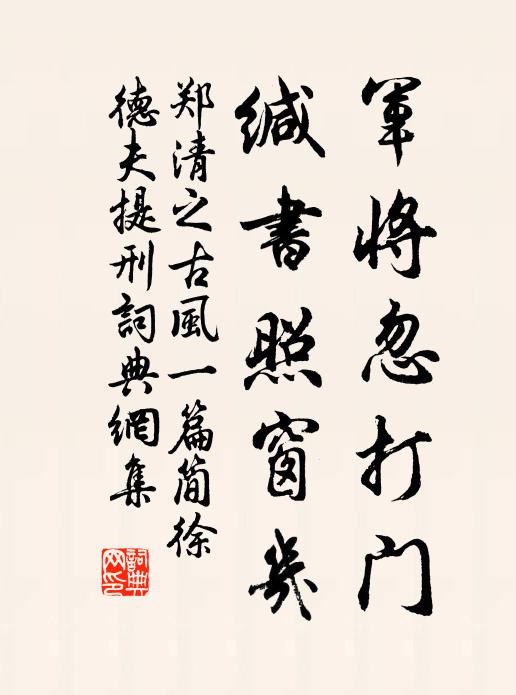 軍將忽打门
缄書照窗几
郑清之古風一篇简徐
德夫提刑詞典網集
詞典网印